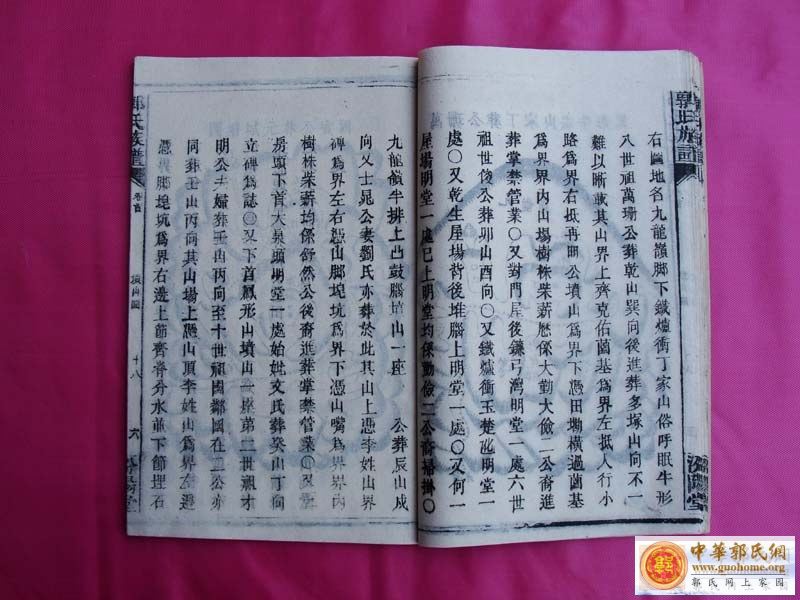 郭氏族譜
右圖地名九龍嶺脚下鐵爐衝丁家山俗呼眠牛形
八世祖萬珊公葬乾山巽向後進葬多塚山向不一
難以晰載其山界上齊克佑菌基為界左抵人行小
路為界右抵再明公墳山為界下憑田坳橫過菌基
為界界內山場樹株柴薪歷係大勤大儉二公裔進
葬掌禁管業〇又對門屋後鐮弓灣明堂一處六世
祖世俊公葬卯山酉向〇又鐵爐衝玉楚明堂一
處〇又乾生屋場背後堆腦上明堂一處〇又何一
屋場明堂一處已上明堂均係勤儉二公裔掃掛〇
汾陽堂
郭氏族譜
卷首
墳山圖
十八
九龍嶺牛排上凸鼓腦墳山一座 公葬辰山戍
向乂士晃公妻劉氏亦葬於此其山上憑李姓山界
碑為界左右憑山脚埦坑為界下憑山嘴為界界內
樹株柴薪均係舒然公後裔進葬掌禁管業〇又
塝頭下首大泉頭明堂一處始妣文氏葬癸山丁向
立碑為誌〇又下首鳳形山墳山一座第二世祖才
明公夫婦葬壬山丙向至十世祖國鄰國在二公亦
同葬壬山丙向其山場上憑山頂李姓山為界左邊
憑界脚埦坑為界右邊上節齊脊分水並下節埋石
汾陽堂
中華郭氏網
www.guohome.org
郭氏网上家园